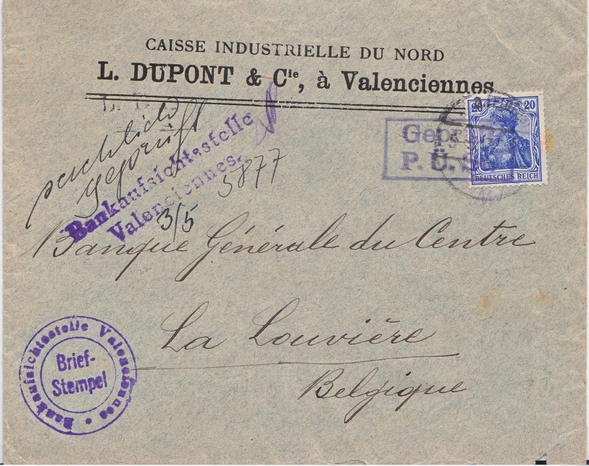 CAISSE INDUSTRIELLE DU NORD
L. DUPONT & Cie, à Valenciennes
geprüft
Bankaufsichtsstelle
Valenciennes.
5877
3/5
20 20
DEUTSCHES REICH
P. Ü.
Banque Générale du Centre
La Louvière
Belgique
Bankaufsichtsstelle Valenciennes
Brief-
Stempel